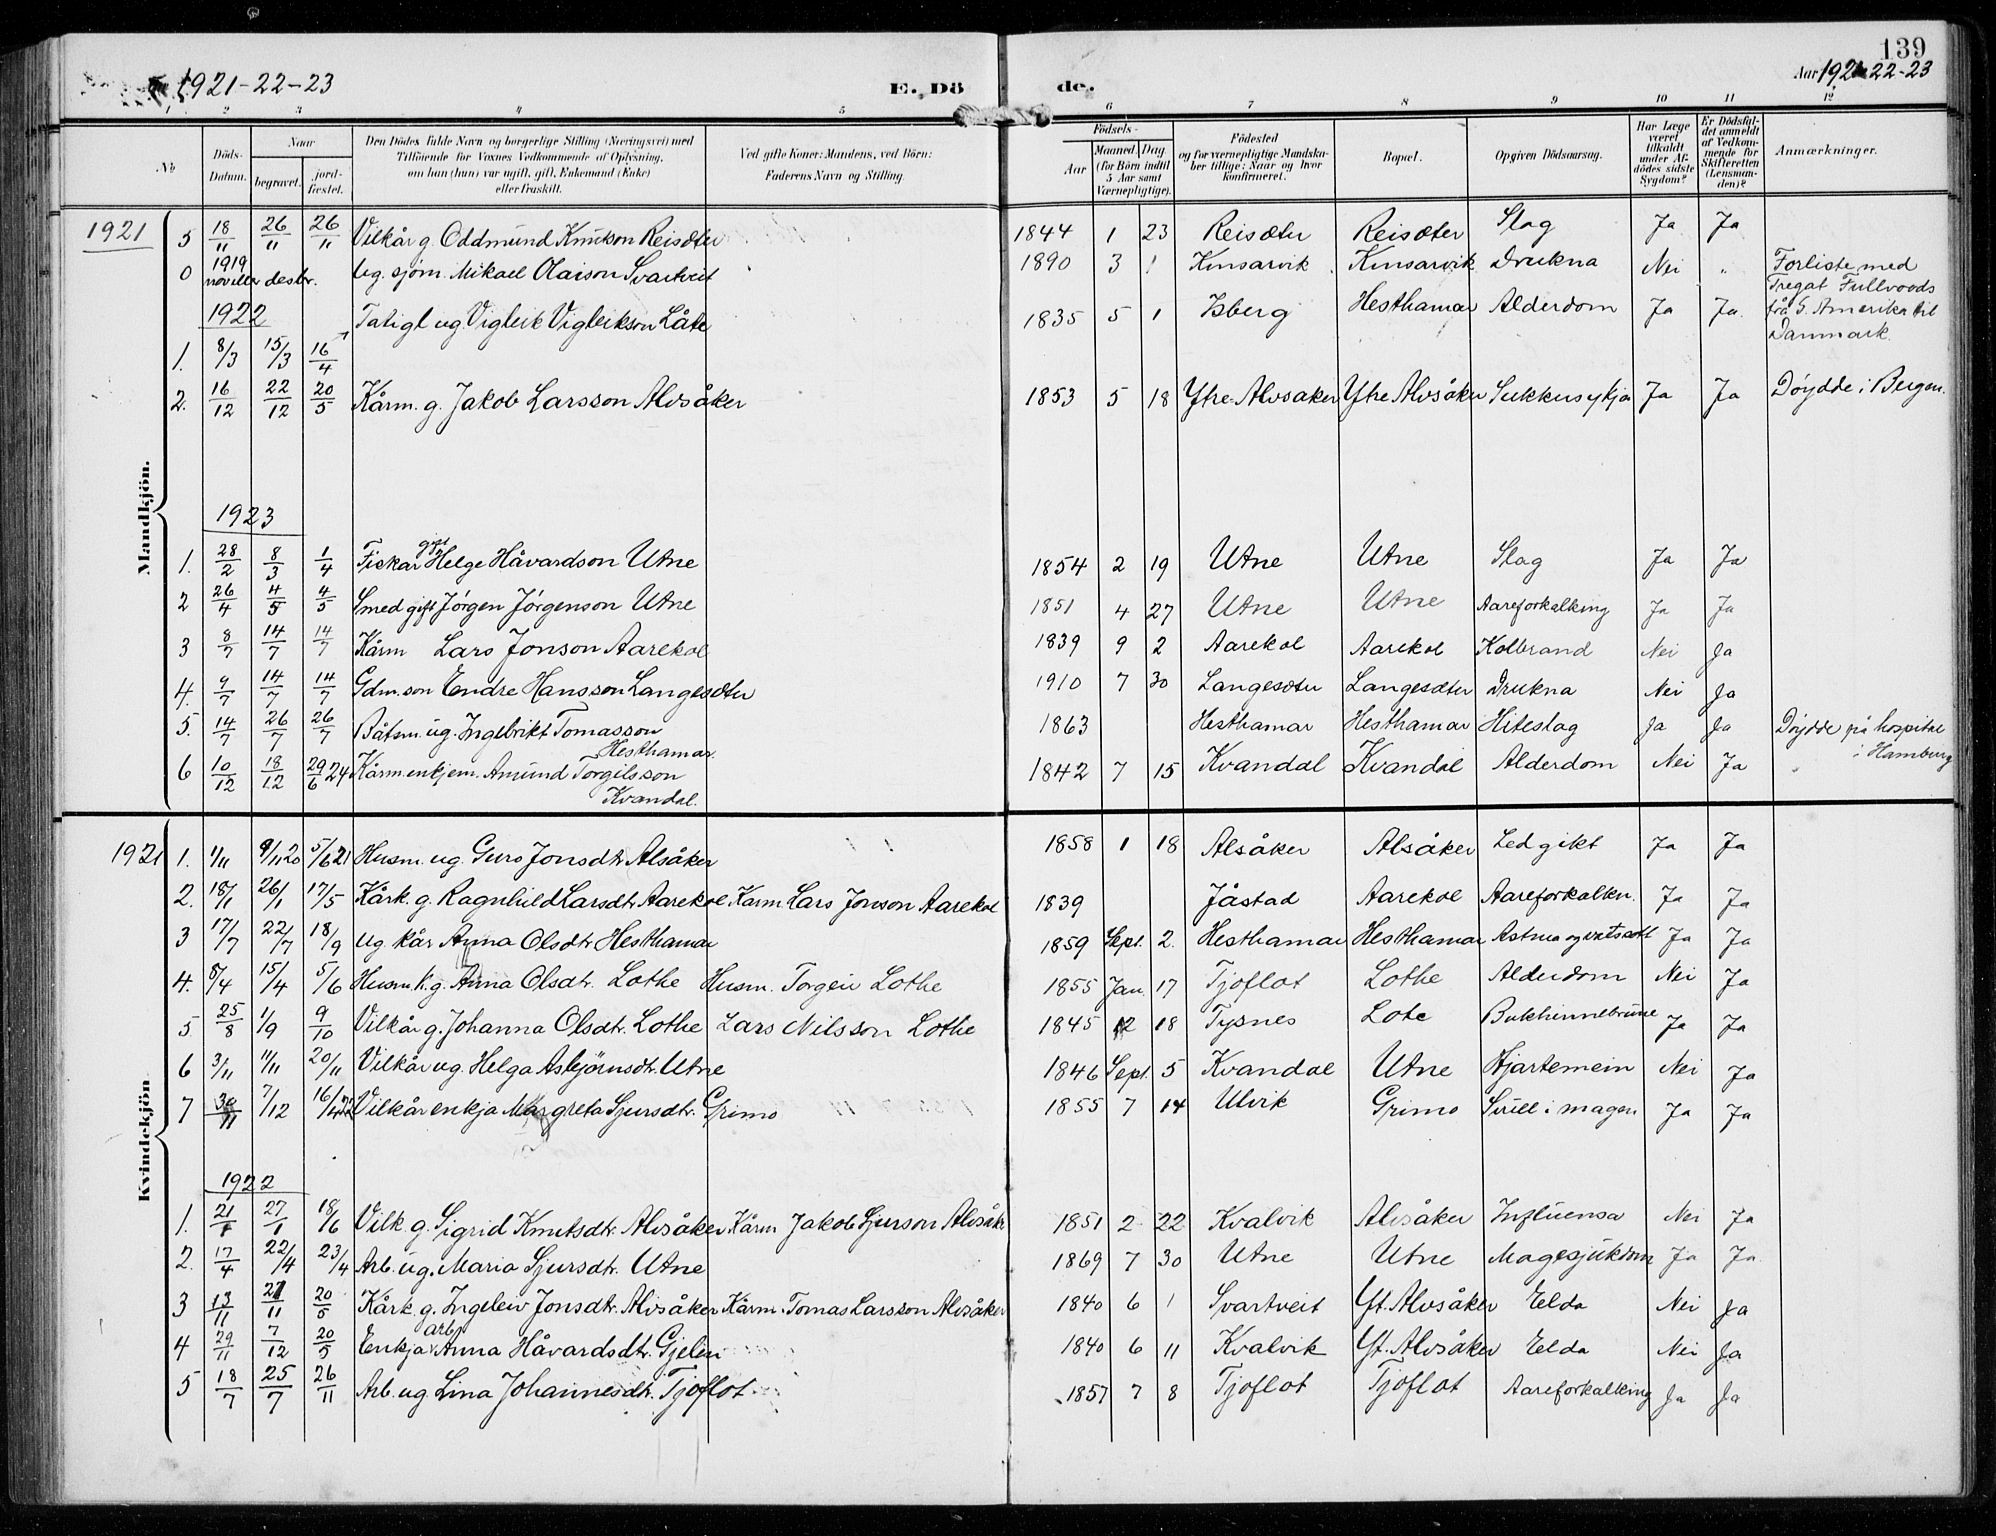 139
1921-22-23 E. Dö de. Aar 1921-22-23
1 2 3 4 5 6 7 8 9 10 11 12
No Döds-Datum. Naar begravet. jord-fæstet. Den Dödes fulde Navn og borgerlige Stilling (Næringsvei) med Tilföiende for Voxnes Vedkommende af Oplysning, om han (hun) var ugift, gift, Enkemand (Enke) eller fraskilt. Ved gifte Koner: Mandens, ved Börn: Faderens Navn og Stilling. Födsels- Aar Maaned Dag (for Börn indtil 5 Aar samt Værnepligtige). Födested og for værnepligtige Mandskaber tillige: Naar og hvor konfirmeret. Bopæl. Opgiven Dödsaarsag. Har Læge været tilkaldt under Afdödes sidste Sygdom? Er Dödsfaldet anmeldt af Vedkommende for Skifteretten (Lensmanden)? Anmærkninger.
Mandkjön.
1921 5 18/11 26/11 26/11 Vilkår g. Oddmund Knutson Reisæter 1844 1 23 Reisæter Reisæter Slag Ja Ja
0 1919 nov eller desbr. Ug. sjøm. Mikael Olaison Svartveit 1890 3 1 Kinsarvik Kinsarvik Drukna Nei " Forliste med Fregat Fullwoods frå S. Amerika til Danmark.
1922 Tatigl ug Vigleik Vigleikson Låte 1835 5 1 Isberg Hesthamar Alderdom Ja Ja
1. 8/3 15/3 16/4
2. 16/12 22/12 20/5 Kårm. g. Jakob Larsson Alvsåker 1853 5 18 Ytre Alvsaker Ytre Alvsåker Sukkersykja Ja Ja Døydde i Bergen.
1923
1. 28/2 8/3 1/4 Fiskar gift Helge Håvardson Utne 1854 2 19 Utne Utne Slag Ja Ja
2 26/4 4/5 4/5 Smed gift Jørgen Jørgenson Utne 1851 4 27 Utne Utne Aareforkalking Ja Ja
3 8/7 14/7 14/7 Kårm Lars Jonson Aarekol 1839 9 2 Aarekol Aarekol Kolbrand Nei Ja
4. 9/7 14/7 14/7 Gdm. son Endre Hansson Langesæter 1910 7 30 Langesæter Langesæter Drukna Nei Ja
5. 14/7 26/7 26/7 Båtsm. ug. Ingebrikt Tomasson Hesthamar. 1863 Hesthamar Hesthamar Hiteslag Ja Ja Døydde på hospital i Hamburg
6 10/12 18/12 29/6 24 Kårm. enkjem. Amund Torgilsson Kvandal. 1842 7 15 Kvandal Kvandal Alderdom Nei Ja
Kvindekjön
1921 1. 1/11 9/11 20 5/6 21 Husm. ug. Guro Jonsdtr Alsåker 1858 1 18 Alsåker Alsåker Led gikt Ja Ja
2. 18/1 26/1 17/5 Kårk. g. Ragnhild Larsdtr Aarekol Karm Lars Jonson Aarekol 1839 Jåstad Aarekol Aareforkalkn. Ja Ja
3 17/7 22/7 18/9 ug. kår Anna Olsdtr Hesthamar 1859 Sept. 2. Hesthamar Hesthamar Astma og vatsott Ja Ja
4. 8/4 15/4 5/6 Husm. k. g. Anna Olsdtr. Lothe Husm. Torgeir Lothe 1855 Jan. 17 Tjoflot Lothe Alderdom Nei Ja
5 25/8 1/9 9/10 Vilkår g. Johanna Olsdtr. Lothe Lars Nilsson Lothe 1845 12 18 Tysnes Lote Bukhinnebrune Ja Ja
6 3/11 11/11 20/11 Vilkår ug. Helga Asbjörnsdtr. Utne 1846 Sept. 5 Kvandal Utne Hjartemein Nei Ja
7 30/11 7/12 16/4 22 Vilkår enkja Margreta Sjursdtr. Grimo 1855 7 14 Ulvik Grimo Svull i magen Ja Ja
1922
1. 21/1 27/1 18/6 Vilk g. Sigrid Knutsdtr. Alvsåker Kårm Jakob Sjurson Alvsåk 1851 2 22 Kvalvik Alvsåker Influensa Nei Ja
2. 17/4 22/4 23/4 Arb. ug. Maria Sjursdtr. Utne 1869 7 30 Utne Utne Magesjukdom Ja Ja
3 13/11 21/11 20/5 Kårk. g. Ingeleiv Jonsdtr. Alvsåker Kårm. Tomas Larsson Alvsåker 1840 6 1 Svartveit Yt. Alvsåker Elda Nei Ja
4 29/11 7/12 20/5 Enkja arb. Anna Håvardsdtr. Gjelen 1840 6 11 Kvalvik Yt. Alvsåker Elda Nei Ja
5 18/7 25/7 26/11 Arb. ug Lina Johannesdtr. Tjoflot 1857 7 8 Tjoflot Tjoflot Aareforkalking Ja Ja